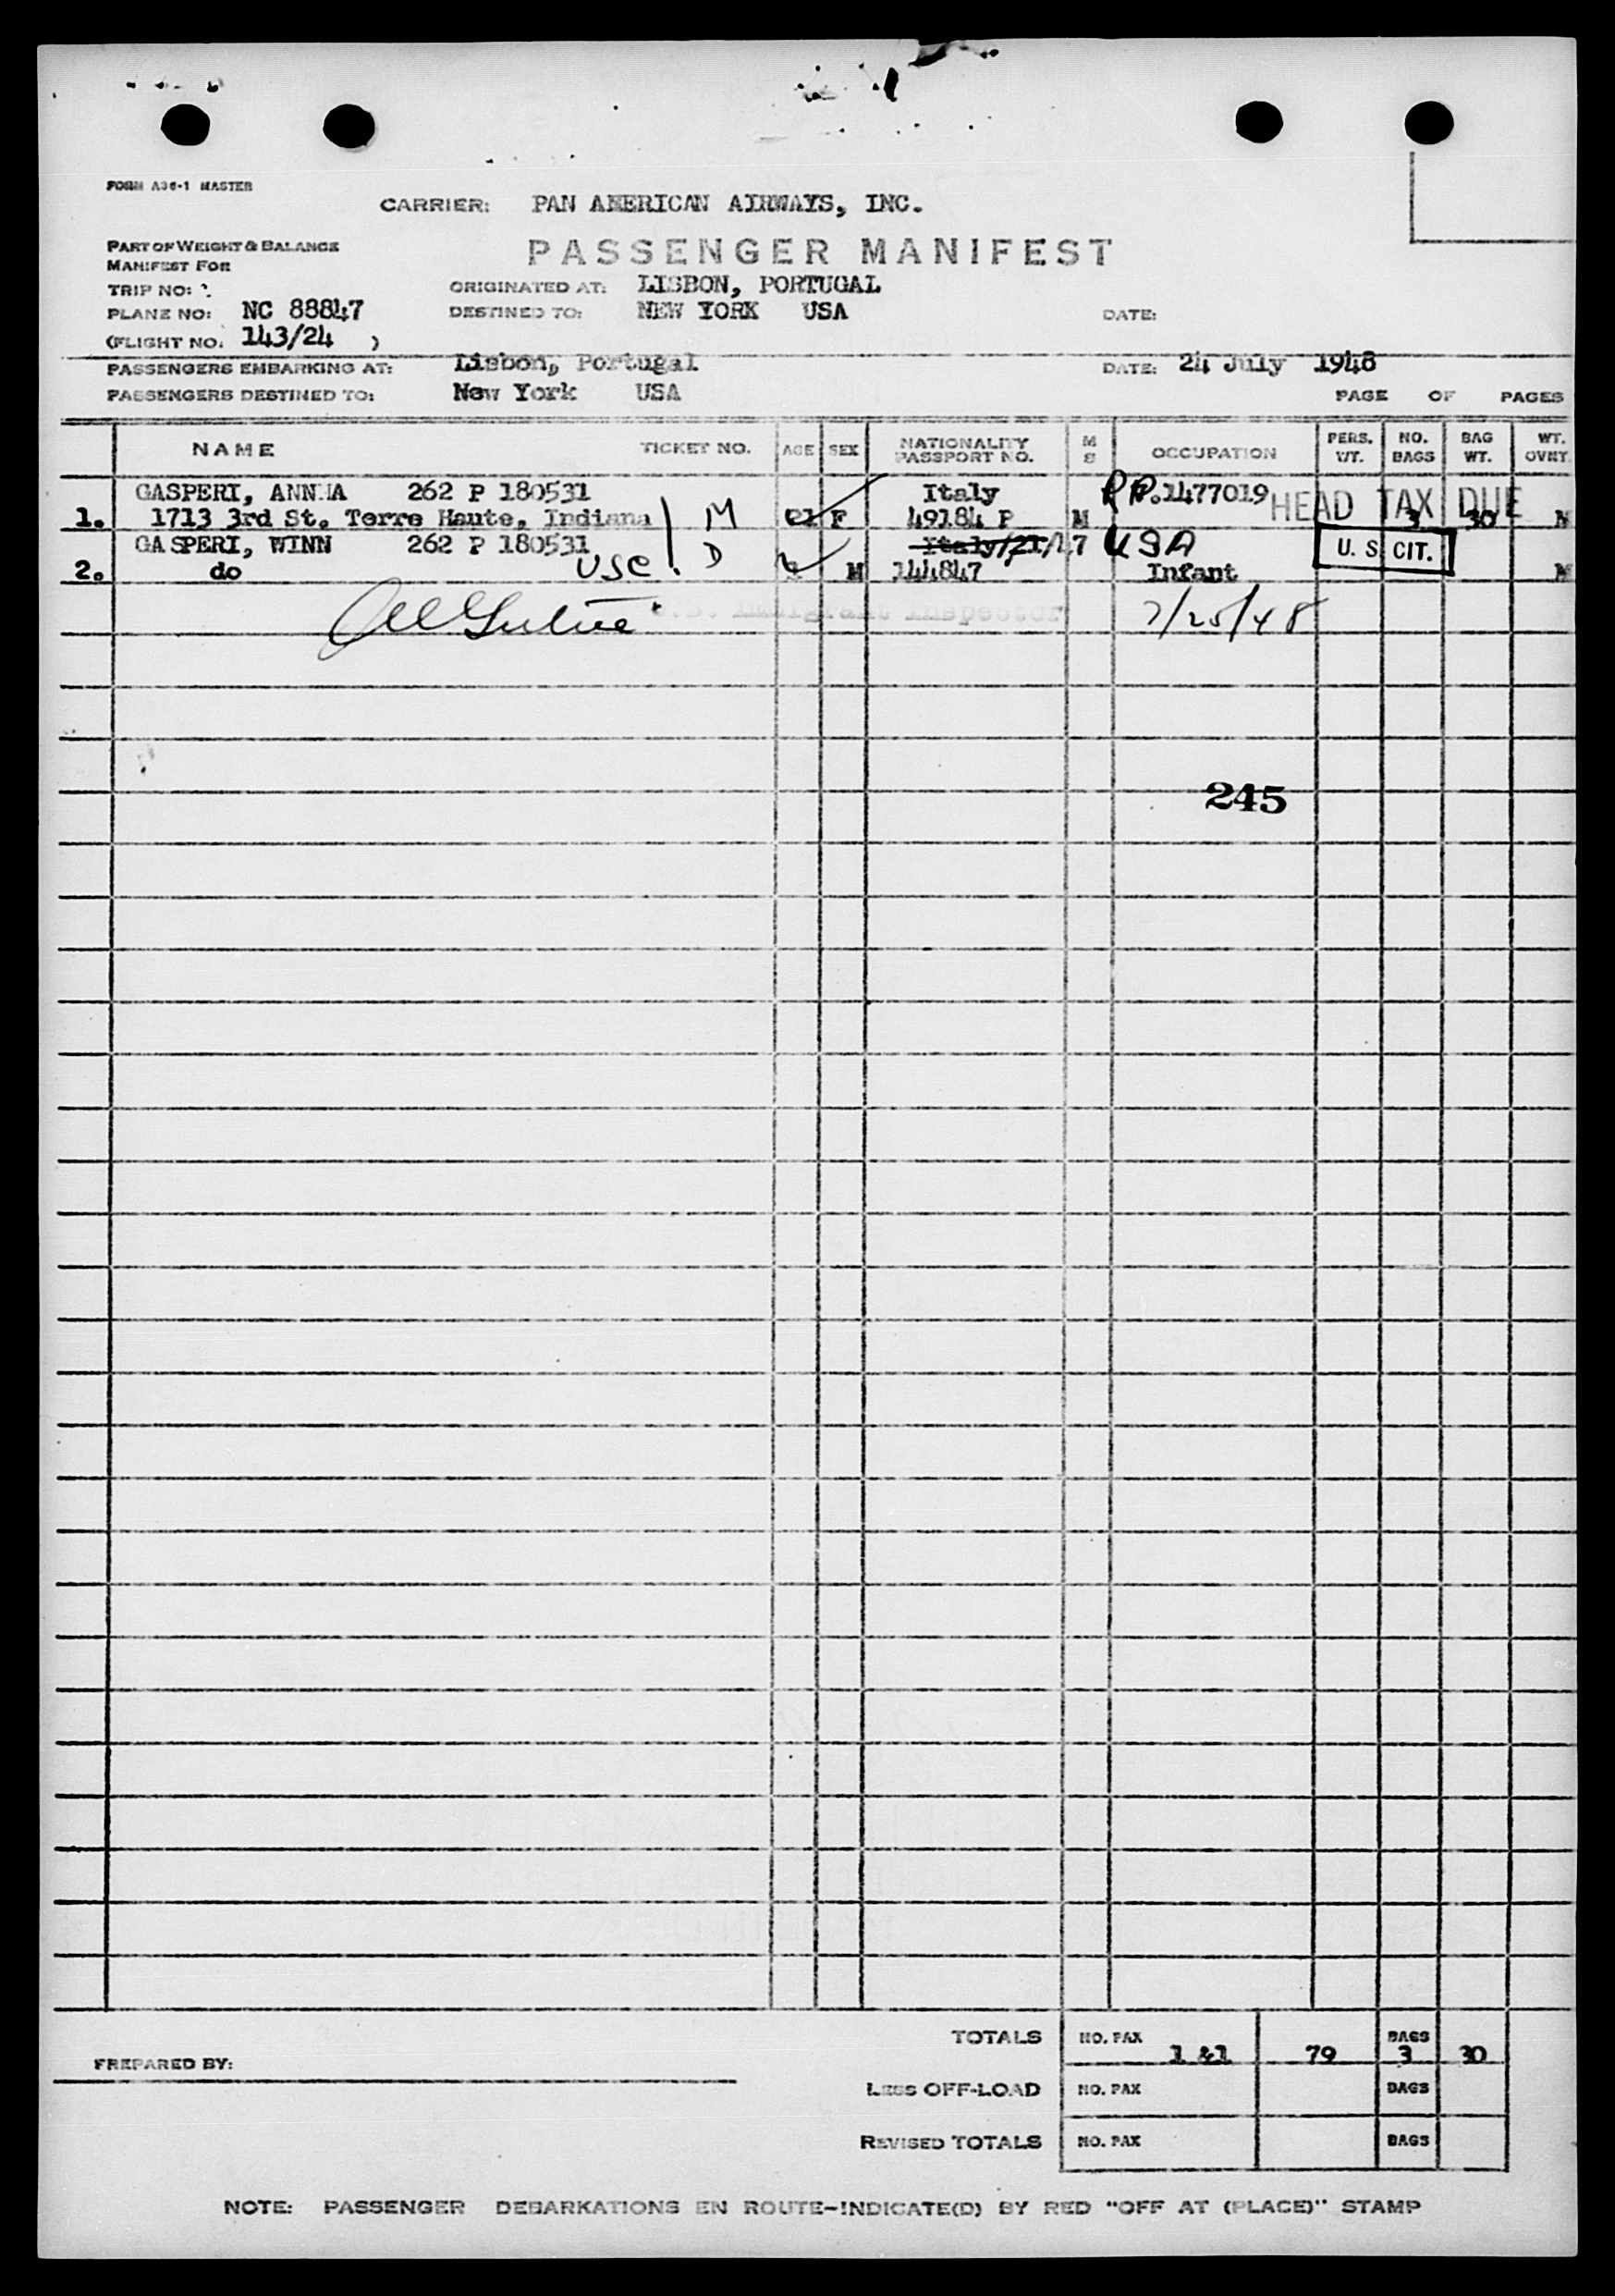 FORM A36-1 MASTER
CARRIER: PAN AMERICAN AIRWAYS, INC.
PART OF WEIGHT & BALANCE
MANIFEST FOR
PASSENGER MANIFEST
TRIP NO:
ORIGINATED AT: LISBON, PORTUGAL
PLANE NO: NC 88847
DESTINED TO: NEW YORK USA
DATE:
(FLIGHT NO. 143/24 )
PASSENGERS EMBARKING AT: Lisbon, Portugal DATE: 24 July 1948
PASSENGERS DESTINED TO: New York USA PAGE OF PAGES
NAME TICKET NO. AGE SEX NATIONALITY PASSPORT NO. M S OCCUPATION PERS. WT. NO. BAGS BAG WT. WT. OVHT.
GASPERI, ANNA 262 P 180531 Italy PP.1477019 HEAD TAX DUE
1. 1713 3rd St. Terre Haute, Indiana M F 49184 P M 3 30 N
GASPERI, WINN 262 P 180531 D Italy USA U. S. CIT.
2. do USC M 144847 Infant N
U.S. Immigrant Inspector 7/25/48
245
TOTALS NO. PAX 1 &1 79 BAGS 3 30
PREPARED BY:
LESS OFF-LOAD NO. PAX BAGS
REVISED TOTALS NO. PAX BAGS
NOTE: PASSENGER DEBARKATIONS EN ROUTE-INDICATE(D) BY RED "OFF AT (PLACE)" STAMP